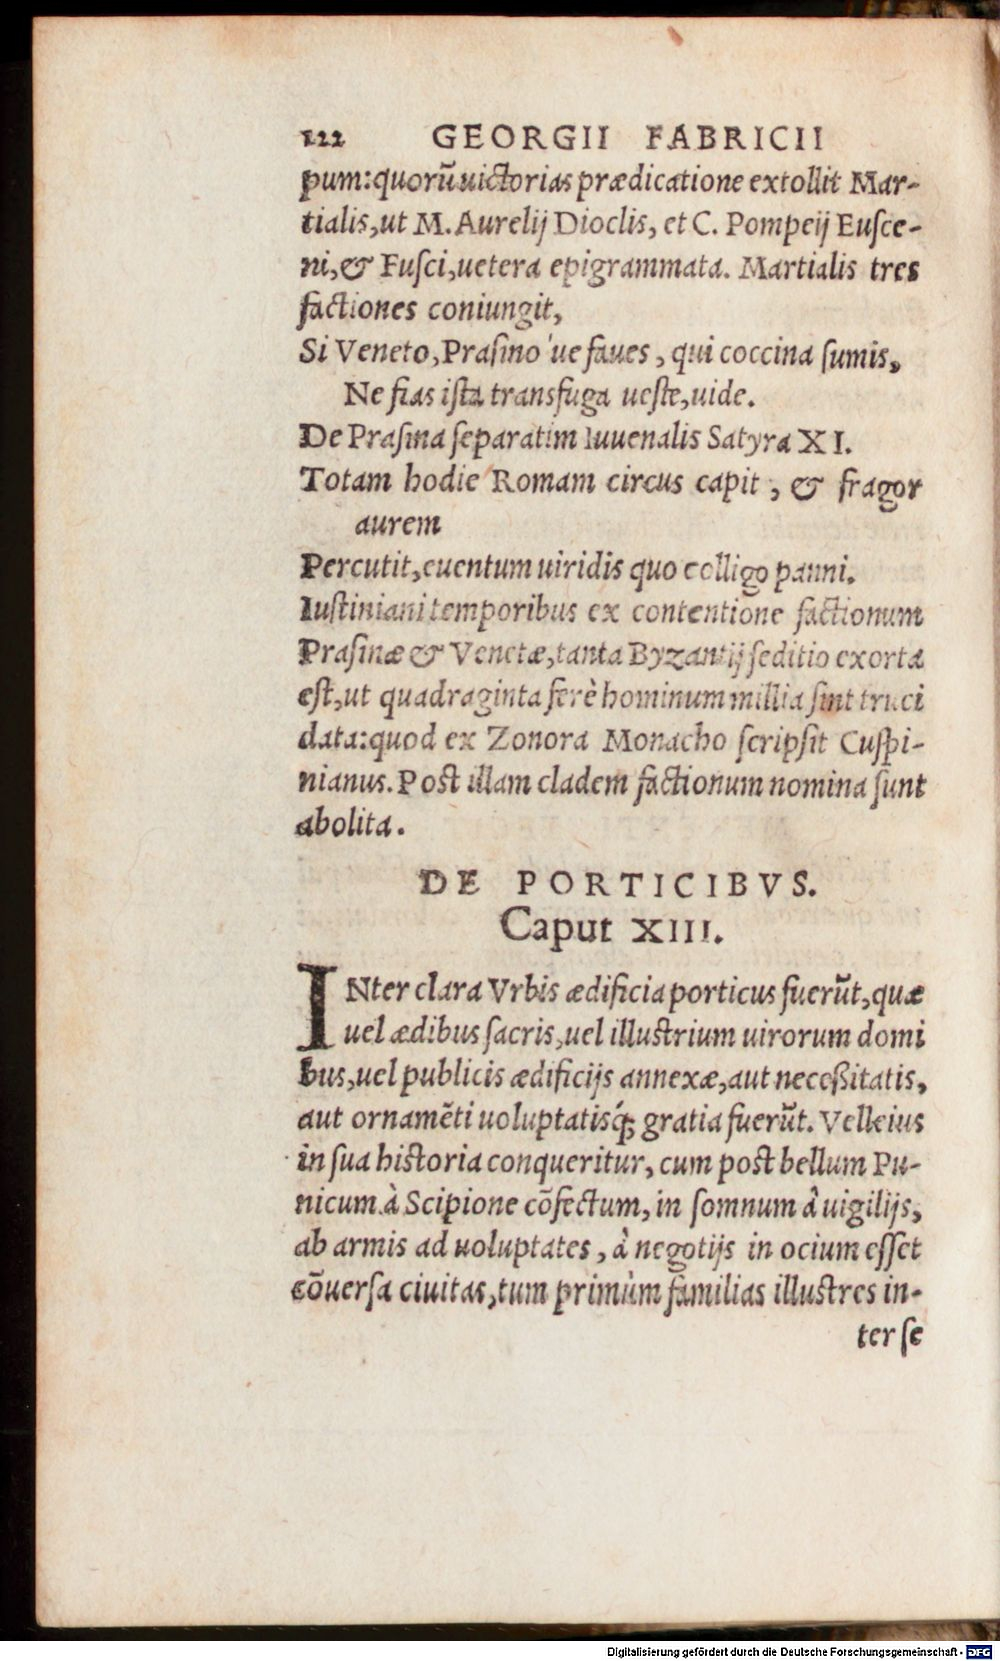 122 GEORGII FABRICII
pum: quorũ uictorias prædicatione extollit Mar-
tialis, ut M. Aurelij Dioclis, et C. Pompeij Euſce-
ni, & Fuſci, uetera epigrammata. Martialis tres
factiones coniungit,
Si Veneto, Praſino ue faues, qui coccina ſumis,
Ne fias iſta transfuga ueſte, uide.
De Praſina ſeparatim Iuuenalis Satyra XI.
Totam hodie Romam circus capit, & fragor
aurem
Percutit, euentum uiridis quo colligo panni.
Iuſtiniani temporibus ex contentione factionum
Praſinæ & Venetæ, tanta Byzantij ſeditio exorta
eſt, ut quadraginta ferè hominum millia ſint truci
data: quod ex Zonora Monacho ſcripſit Cuſpi-
nianus. Poſt illam cladem factionum nomina ſunt
abolita.
DE PORTICIBVS.
Caput XIII.
INter clara Vrbis ædificia porticus fuerũt, quæ
uel ædibus ſacris, uel illuſtrium uirorum domi
bus, uel publicis ædificijs annexæ, aut neceßitatis,
aut ornamẽti uoluptatisq́; gratia fuerũt. Velleius
in ſua hiſtoria conqueritur, cum poſt bellum Pu-
nicum à Scipione cõfectum, in ſomnum à uigilijs,
ab armis ad uoluptates, à negotijs in ocium eſſet
cõuerſa ciuitas, tum primùm familias illuſtres in-
ter ſe
Digitalisierung gefördert durch die Deutsche Forschungsgemeinschaft - DFG